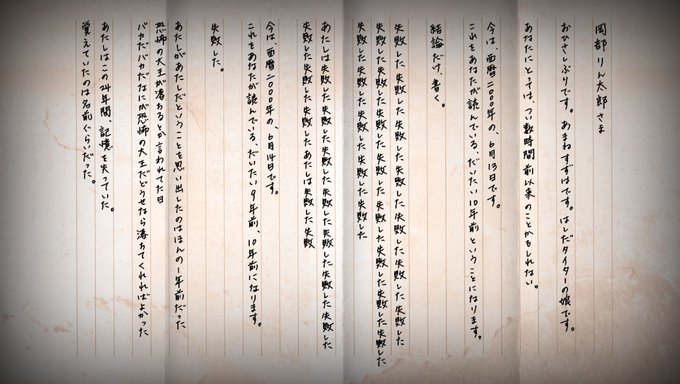 岡部りん太郎さま
おひさしぶりです。あまねすずはです。はしだタイターの娘です。
あなたにとっては、つい数時間前以来のことかもしれない。
今は、西暦二000年の、6月13日です。
これをあなたが読んでいる、だいたい10年前ということになります。
結論だけ、書く。
失敗した失敗した失敗した失敗した失敗した失敗した失敗した失敗した失敗した
失敗した失敗した失敗した失敗した失敗した失敗した失敗した失敗した失敗した失敗した
失敗した失敗した失敗した失敗した失敗した失敗した
あたしは失敗した失敗した失敗した失敗した失敗した失敗した失敗した失敗した
失敗した失敗した失敗した失敗したあたしは失敗した失敗
今は、西暦二000年の、6月14日です。
これをあなたが読んでいる、だいたい9年前、10年前になります。
失敗した。
あたしがあたしだということを思い出したのはほんの1年前だった
恐怖の大王が落ちるとか言われてた日
バカだバカだなにが恐怖の大王だどうせなら落ちてくれればよかった
あたしはこの24年間、記憶を失っていた。
覚えていたのは名前ぐらいだった。